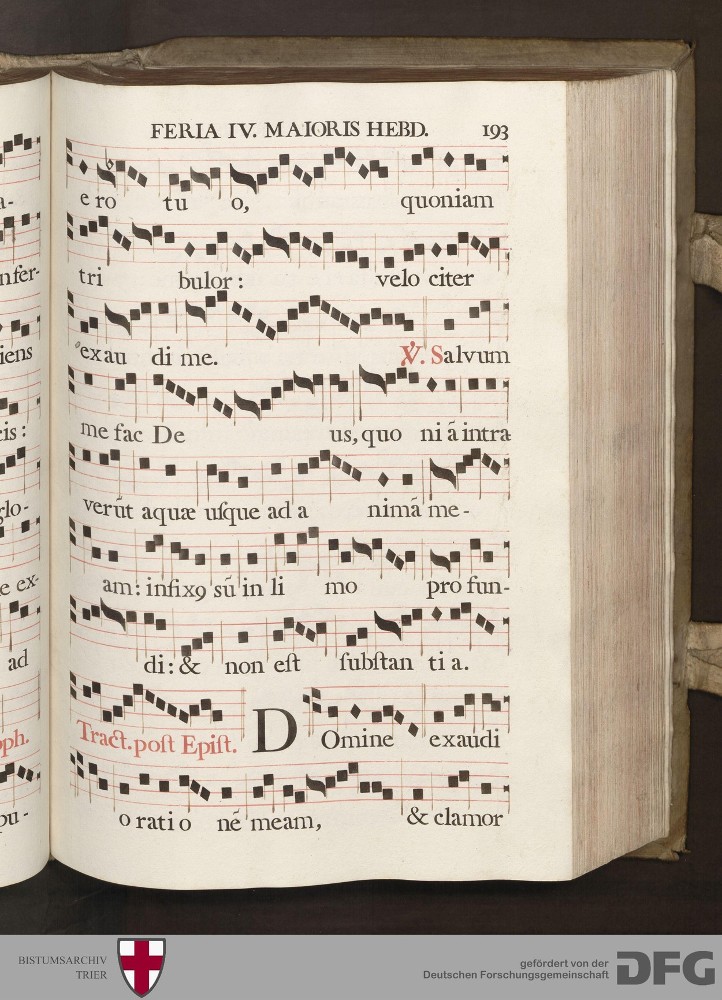 FERIA IV. MAIORIS HEBD. 193
e ro tu o, quoniam
tri bulor: velo citer
exau di me. ℣. Salvum
me fac De us, quo ni ā intra
verūt aquæ uſque ad a nimā me-
am: infixꝯ sū in li mo pro fun-
di: & non eſt ſubſtan ti a.
Tract. poſt Epiſt. DOmine exaudi
o rati o nē meam, & clamor
a-
nfer-
iens
cis:
glo-
e ex-
ad
oph.
pu-
BISTUMSARCHIV
TRIER
gefördert von der
Deutschen Forschungsgemeinschaft
DFG